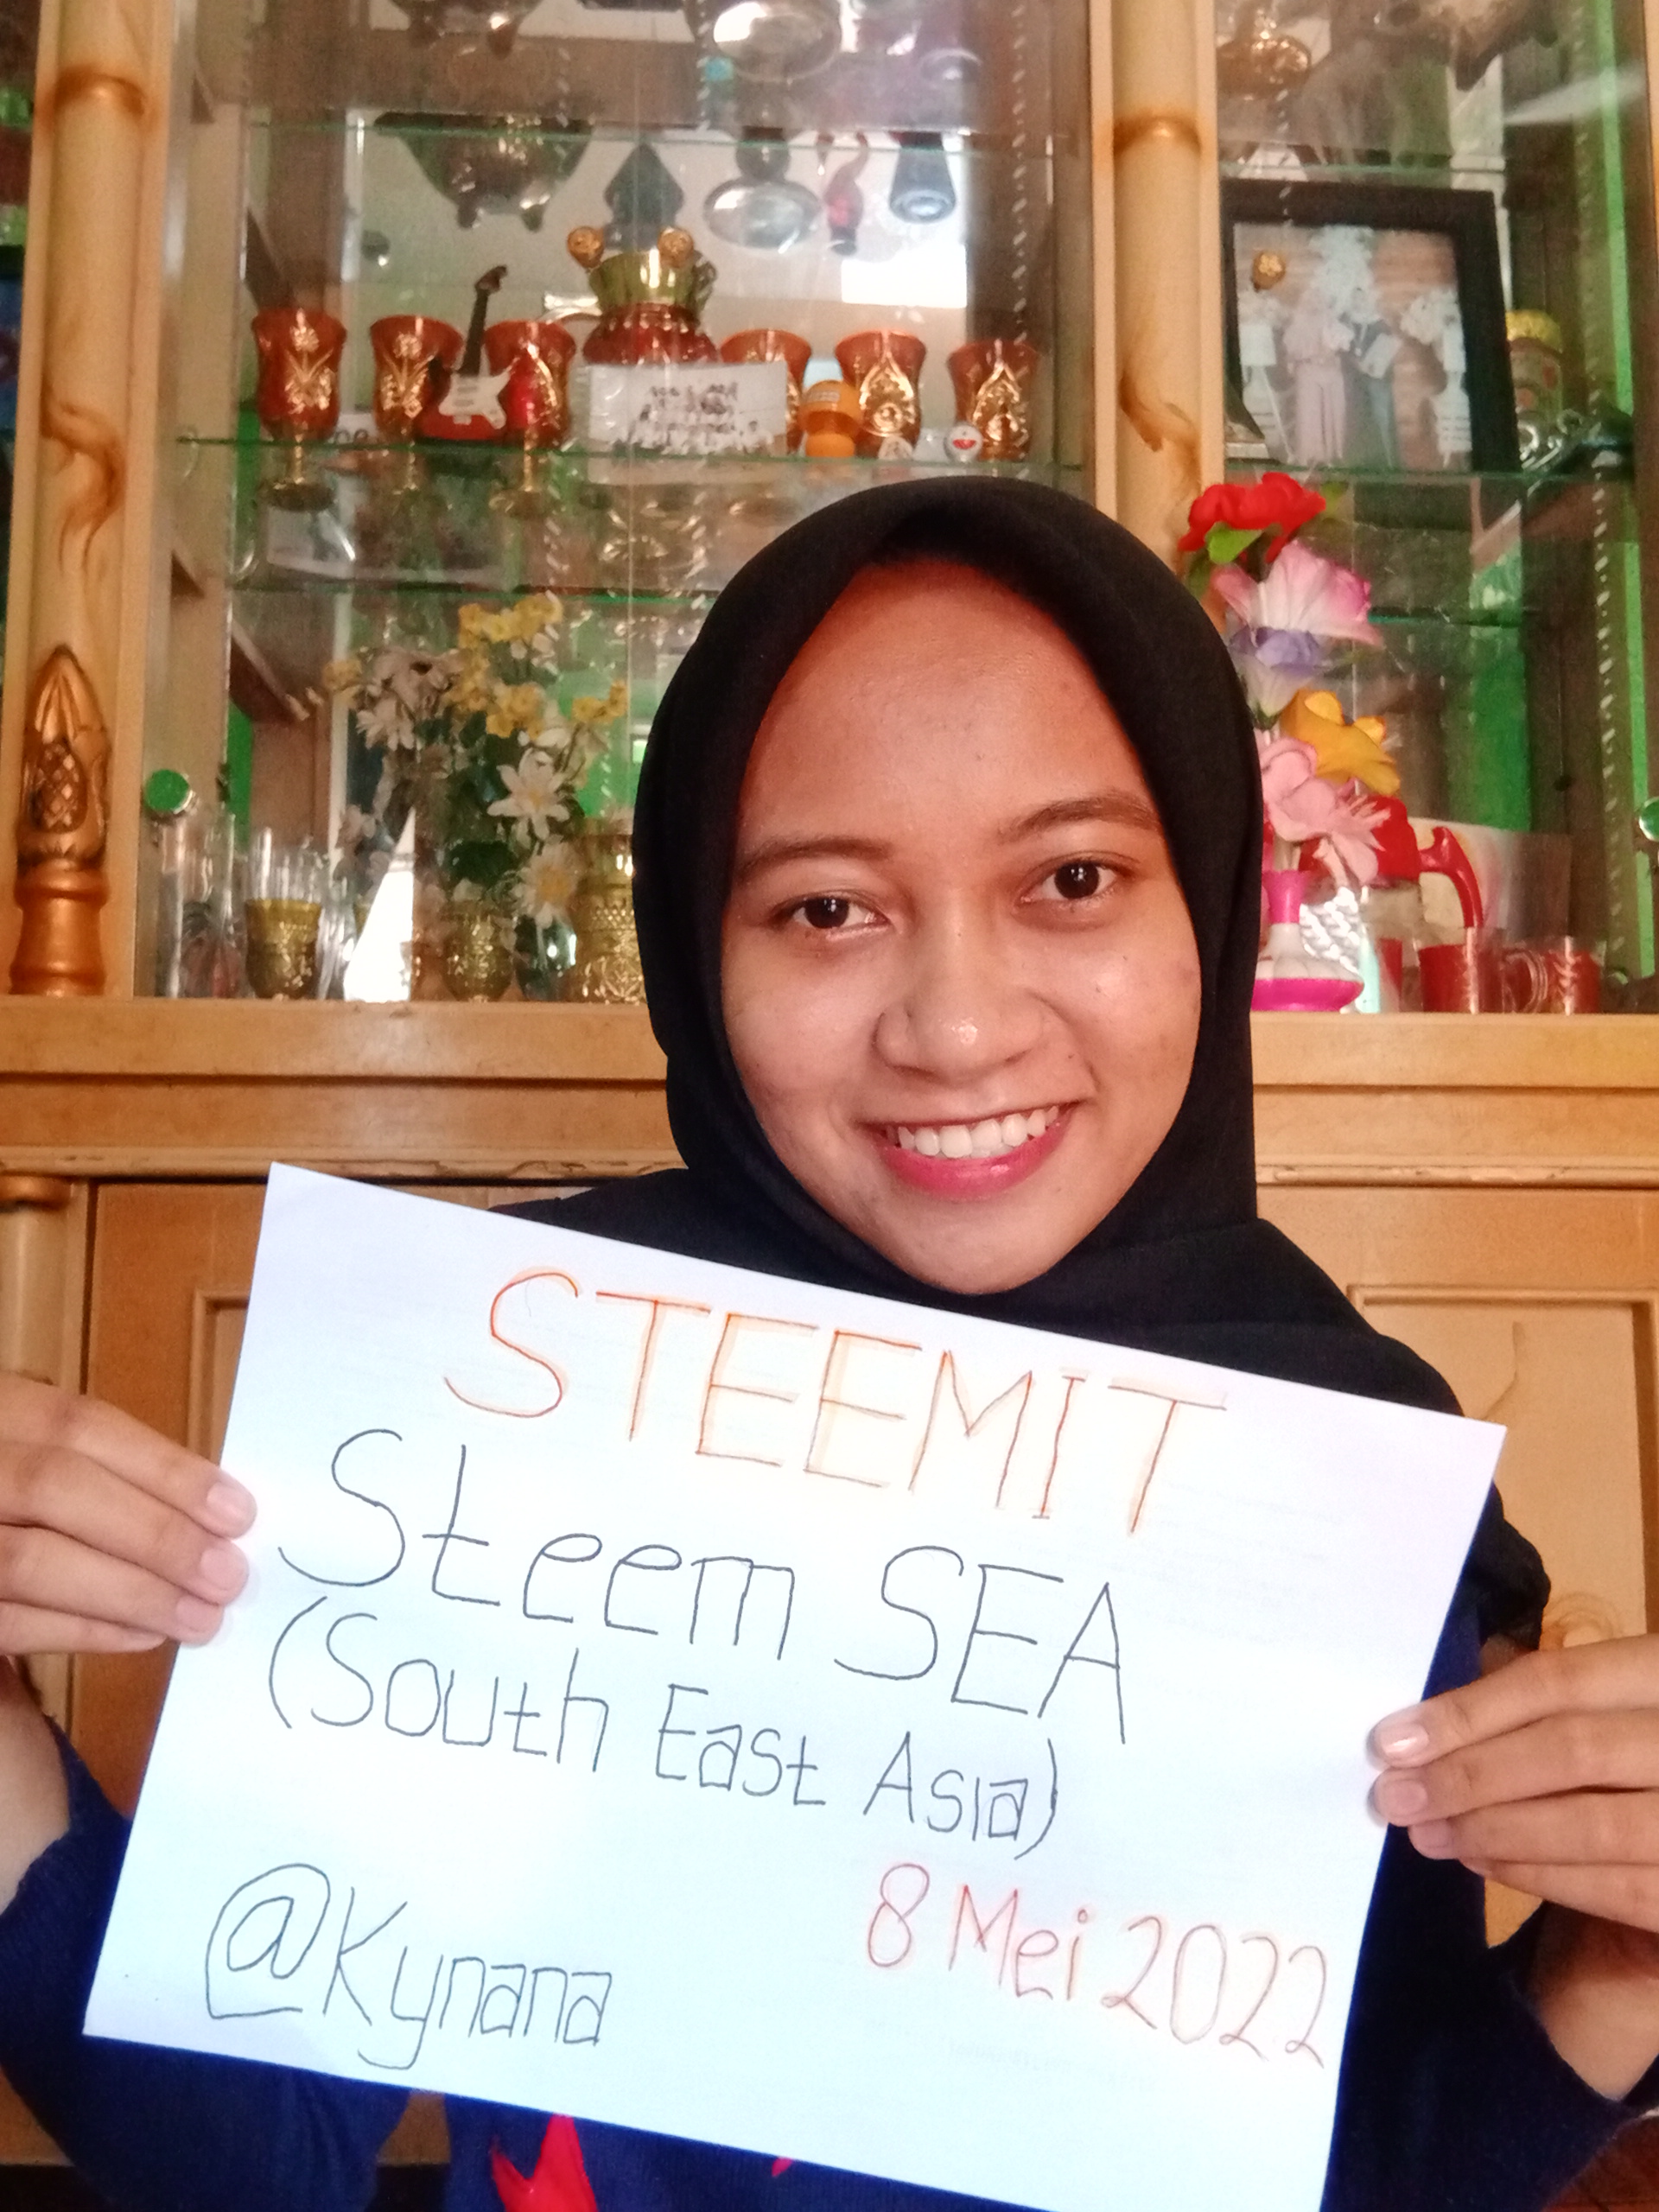 STEEMIT
Steem SEA
(South East Asia)
@Kynana
8 Mei 2022